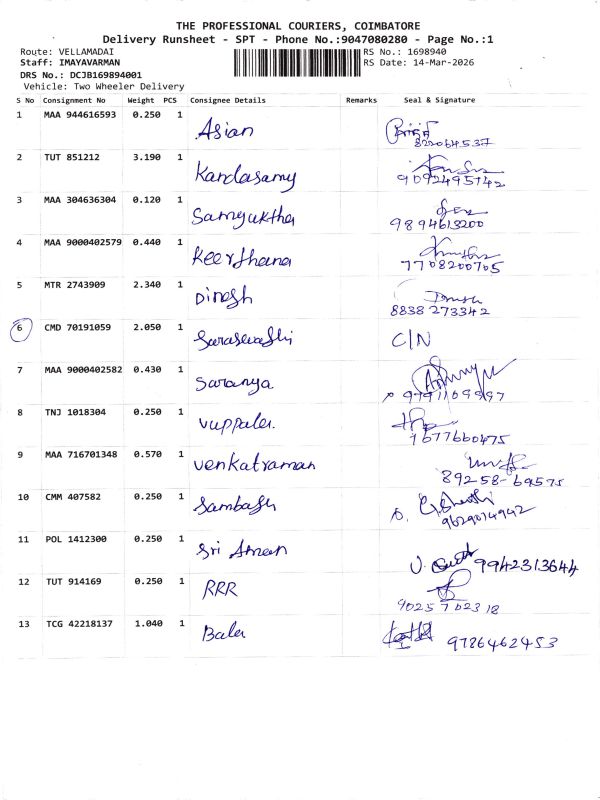 THE PROFESSIONAL COURIERS, COIMBATORE
Delivery Runsheet - SPT - Phone No.:9047080280 - Page No.:1
Route: VELLAMADAI RS No.: 1698940
Staff: IMAYAVARMAN RS Date: 14-Mar-2026
DRS No.: DCJB169894001
Vehicle: Two Wheeler Delivery
S No Consignment No Weight PCS Consignee Details Remarks Seal & Signature
1 MAA 944616593 0.250 1 Asian
2 TUT 851212 3.190 1 Kandasamy 9092495742
3 MAA 304636304 0.120 1 Samyuktha 9894613200
4 MAA 9000402579 0.440 1 Keerthana 7708200705
5 MTR 2743909 2.340 1 Dinesh 8838 273342
6 CMD 70191059 2.050 1 Saraswathi C/N
7 MAA 9000402582 0.430 1 Saranya 9791109997
8 TNJ 1018304 0.250 1 vuppala. 7677660475
9 MAA 716701348 0.570 1 venkatraman 89258-69575
10 CMM 407582 0.250 1 9629014942
11 POL 1412300 0.250 1 Sri 9942313644
12 TUT 914169 0.250 1 RRR 9025702318
13 TCG 42218137 1.040 1 Bala 9786462453